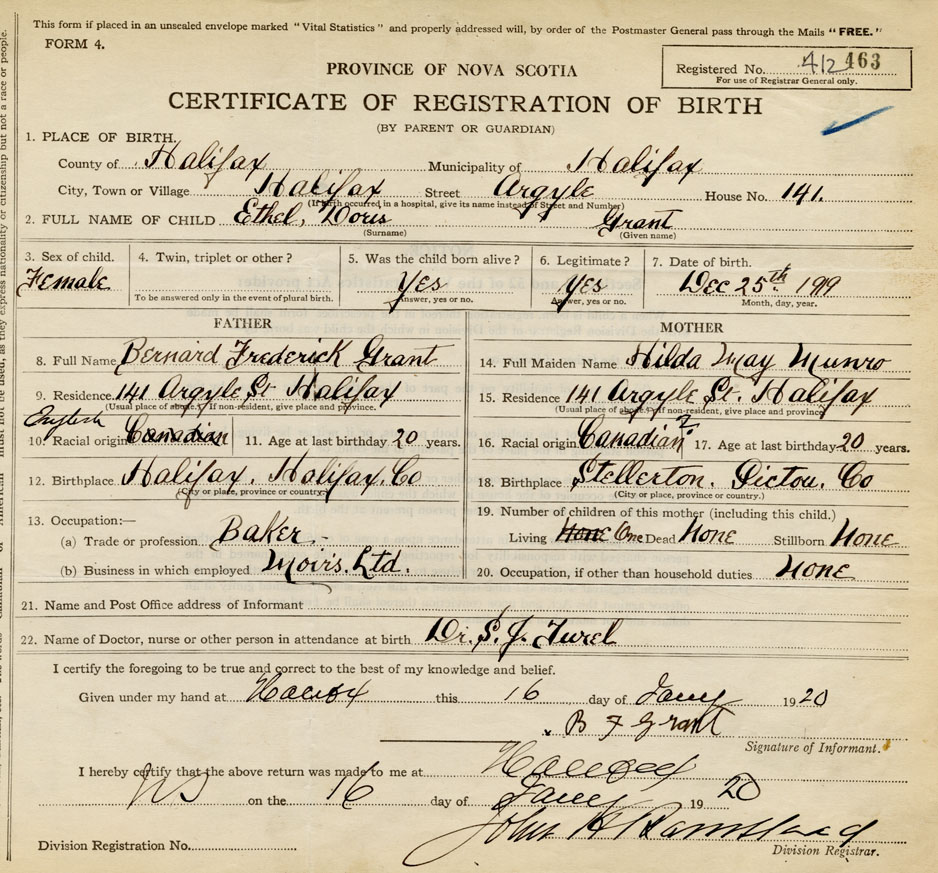 This form if placed in an unsealed envelope marked "Vital Statistics" and properly addressed will, by order of the Postmaster General pass through the Mails "FREE."
FORM 4.
Registered No. 412 463
For use of Registrar General only.
PROVINCE OF NOVA SCOTIA
CERTIFICATE OF REGISTRATION OF BIRTH
(BY PARENT OR GUARDIAN)
1. PLACE OF BIRTH.
County of Halifax Municipality of Halifax
City, Town or Village Halifax Street Argyle House No. 141.
(If birth occurred in a hospital, give its name instead of Street and Number)
2. FULL NAME OF CHILD Ethel, Doris Grant
(Surname) (Given name)
3. Sex of child. 4. Twin, triplet or other? 5. Was the child born alive? 6. Legitimate? 7. Date of birth.
Female Yes Yes Dec 25th 1919
To be answered only in the event of plural birth. Answer, yes or no. Answer, yes or no. Month, day, year.
FATHER
8. Full Name Bernard Frederick Grant
9. Residence 141 Argyle St Halifax
(Usual place of abode.) If non-resident, give place and province.
English
10. Racial origin Canadian 11. Age at last birthday 20 years.
12. Birthplace Halifax. Halifax. Co
(City or place, province or country.)
13. Occupation:—
(a) Trade or profession. Baker
(b) Business in which employed Moirs. Ltd.
MOTHER
14. Full Maiden Name Hilda May Munro
15. Residence 141 Argyle St. Halifax
(Usual place of abode.) If non-resident, give place and province
16. Racial origin Canadian ? 17. Age at last birthday 20 years.
18. Birthplace Stellerton. Pictou. Co
(City or place, province or country.)
19. Number of children of this mother (including this child.)
Living None One Dead None Stillborn None
20. Occupation, if other than household duties None
21. Name and Post Office address of Informant
22. Name of Doctor, nurse or other person in attendance at birth Dr. S. J.
I certify the foregoing to be true and correct to the best of my knowledge and belief.
Given under my hand at this 16 day of Jany 1920
B F Grant
Signature of Informant.
I hereby certify that the above return was made to me at
NS on the 16 day of Jany 1920
John H
Division Registration No. Division Registrar.